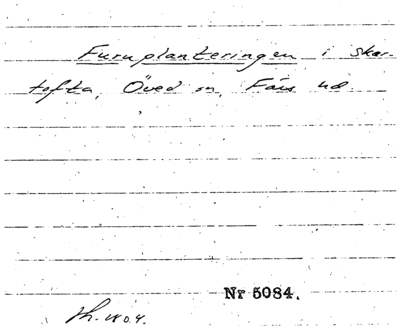 Furuplanteringen i skar-
tofta, Öved sn, Färs hd.
Nr 5084.